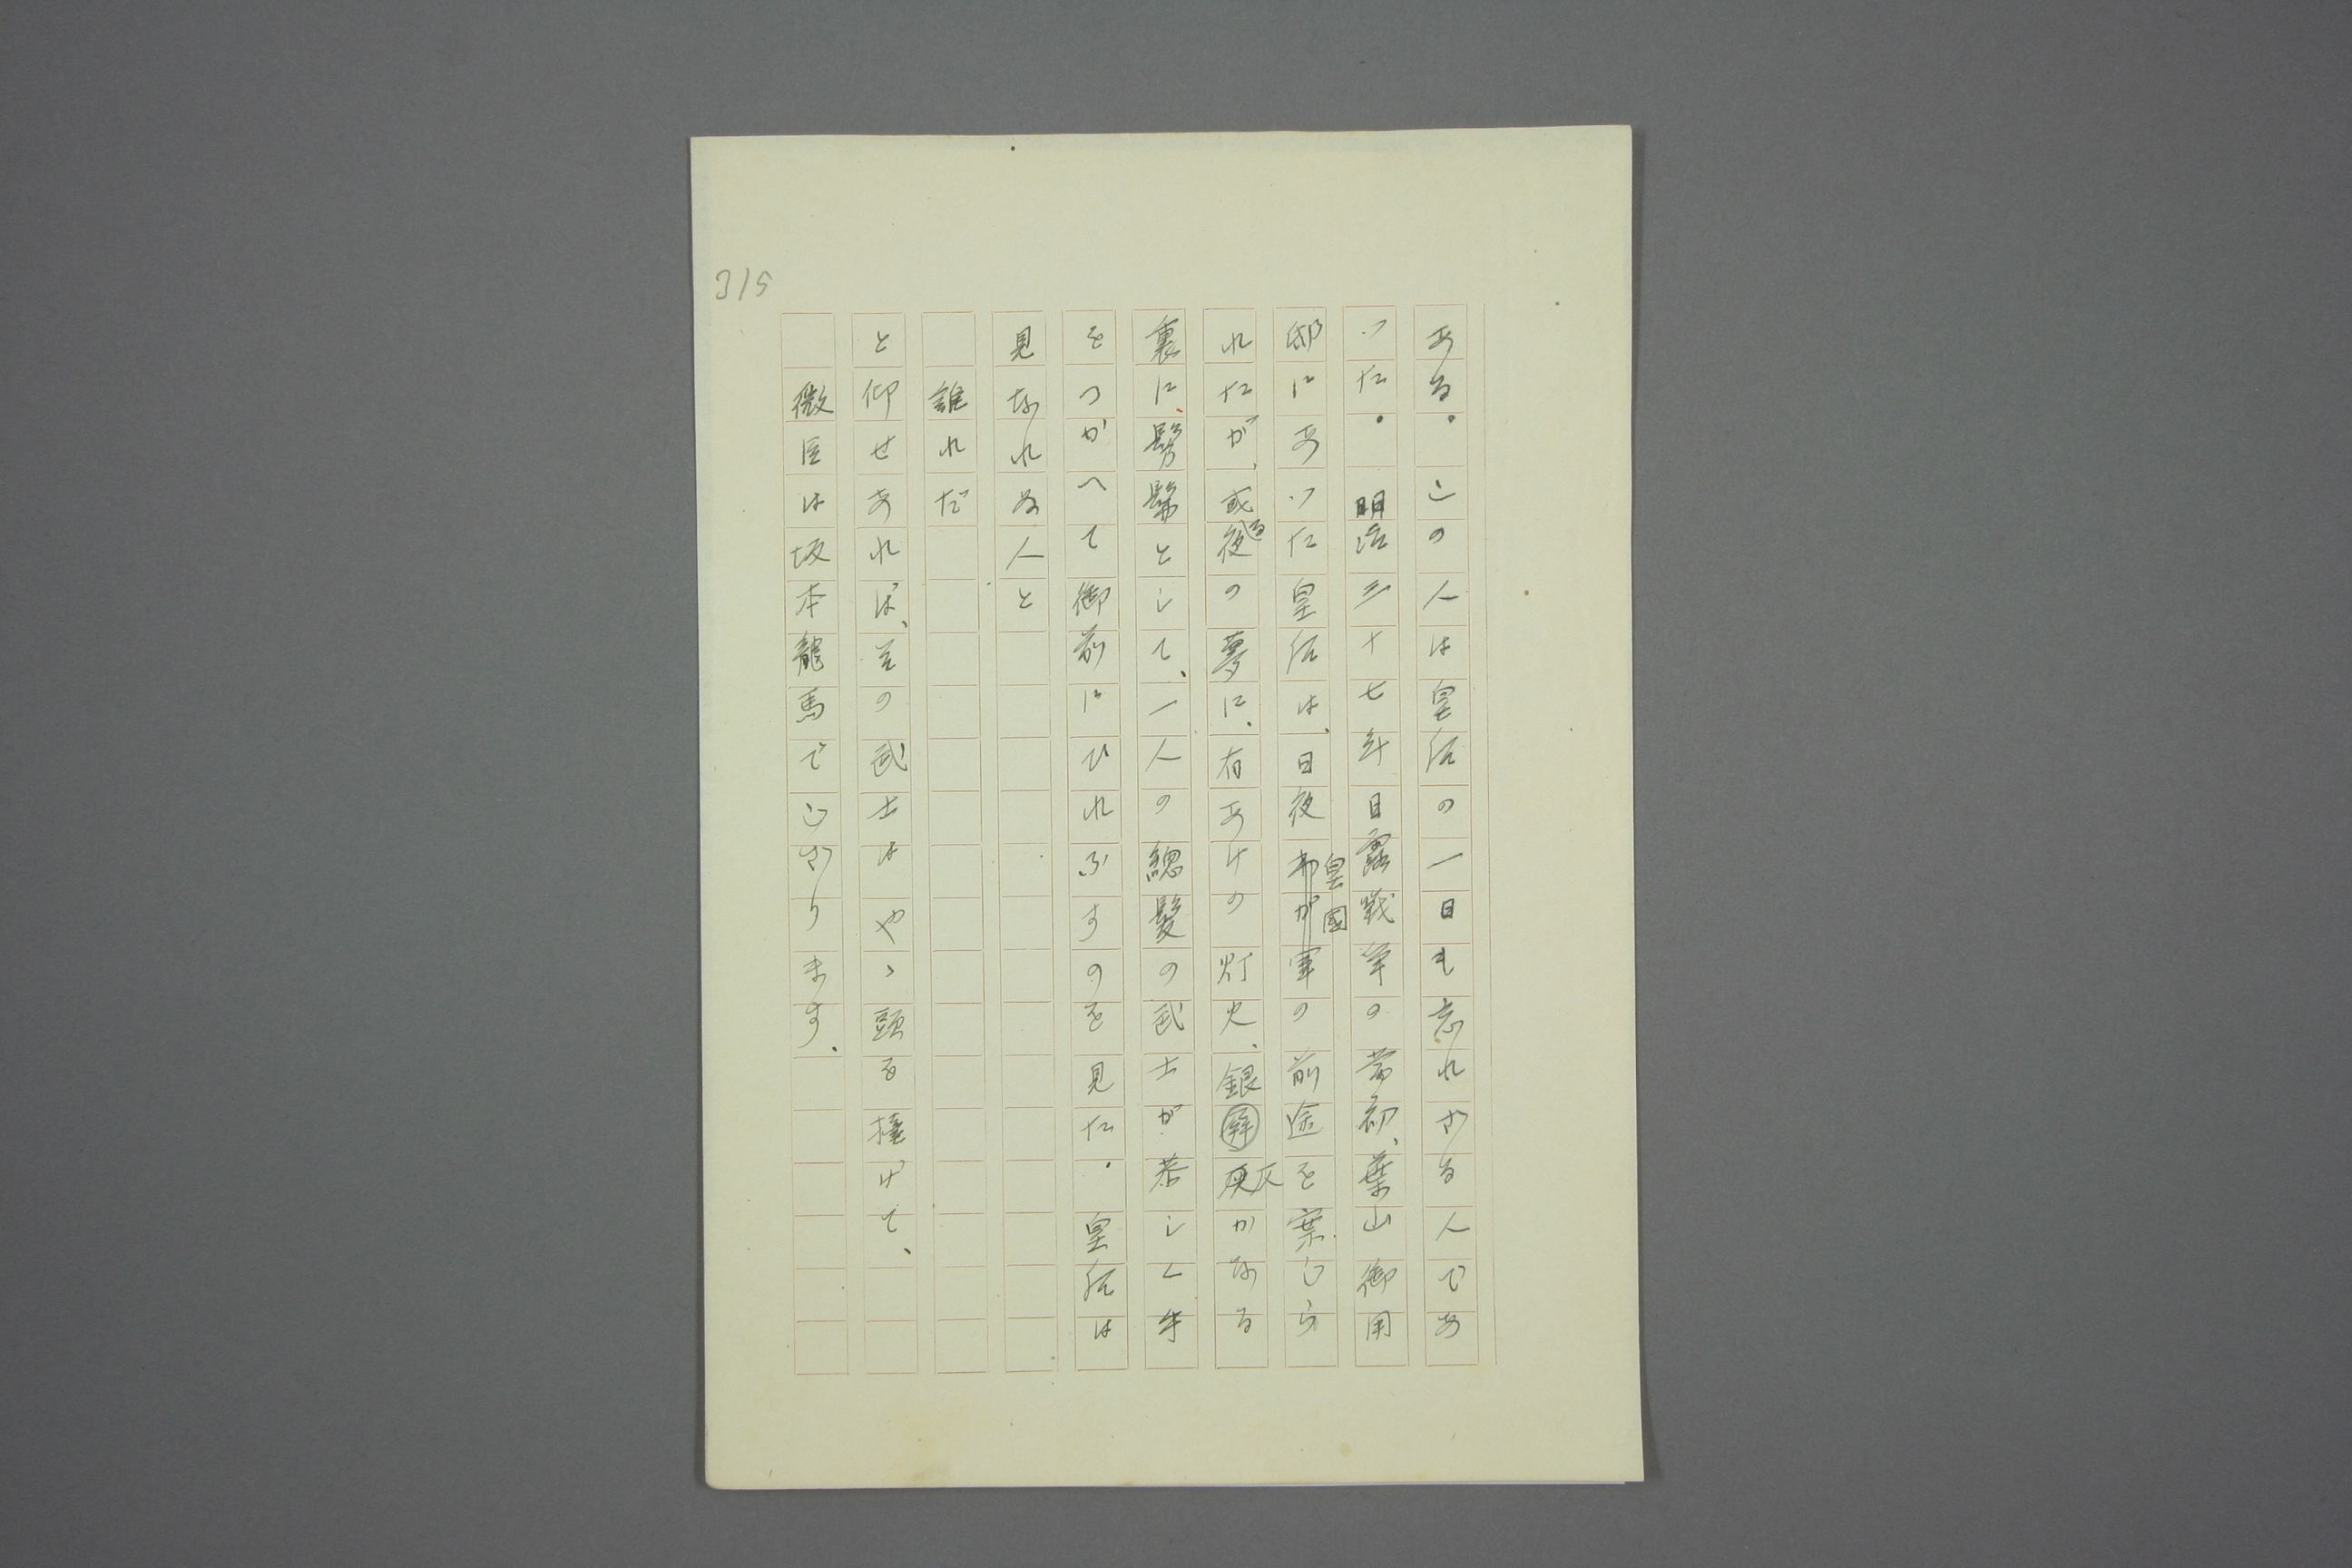 315
ある。この人は皇后の一日も忘れざる人であ
つた。明治三十七年日露戦争の当初、葉山御用
邸にあつた皇后は、日夜皇國軍の前途を案じら
れたが、或る夜の夢に、有あけの灯火、銀屏灰かなる
裏に、髣髴として、一人の總髪の武士が恭しく手
をつかへて御前にひれふすのを見た。皇后は
見なれぬ人と
誰れだ
と仰せあれば、その武士はやゝ頭を擡げて、
微臣は坂本龍馬でござります。